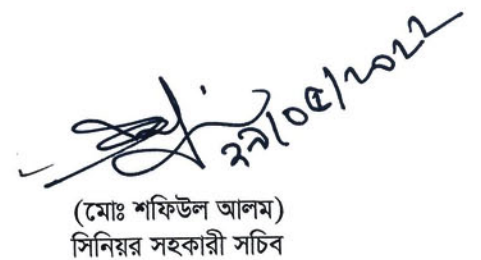 ২৯/০৫/২০২২
(মোঃ শফিউল আলম)
সিনিয়র সহকারী সচিব